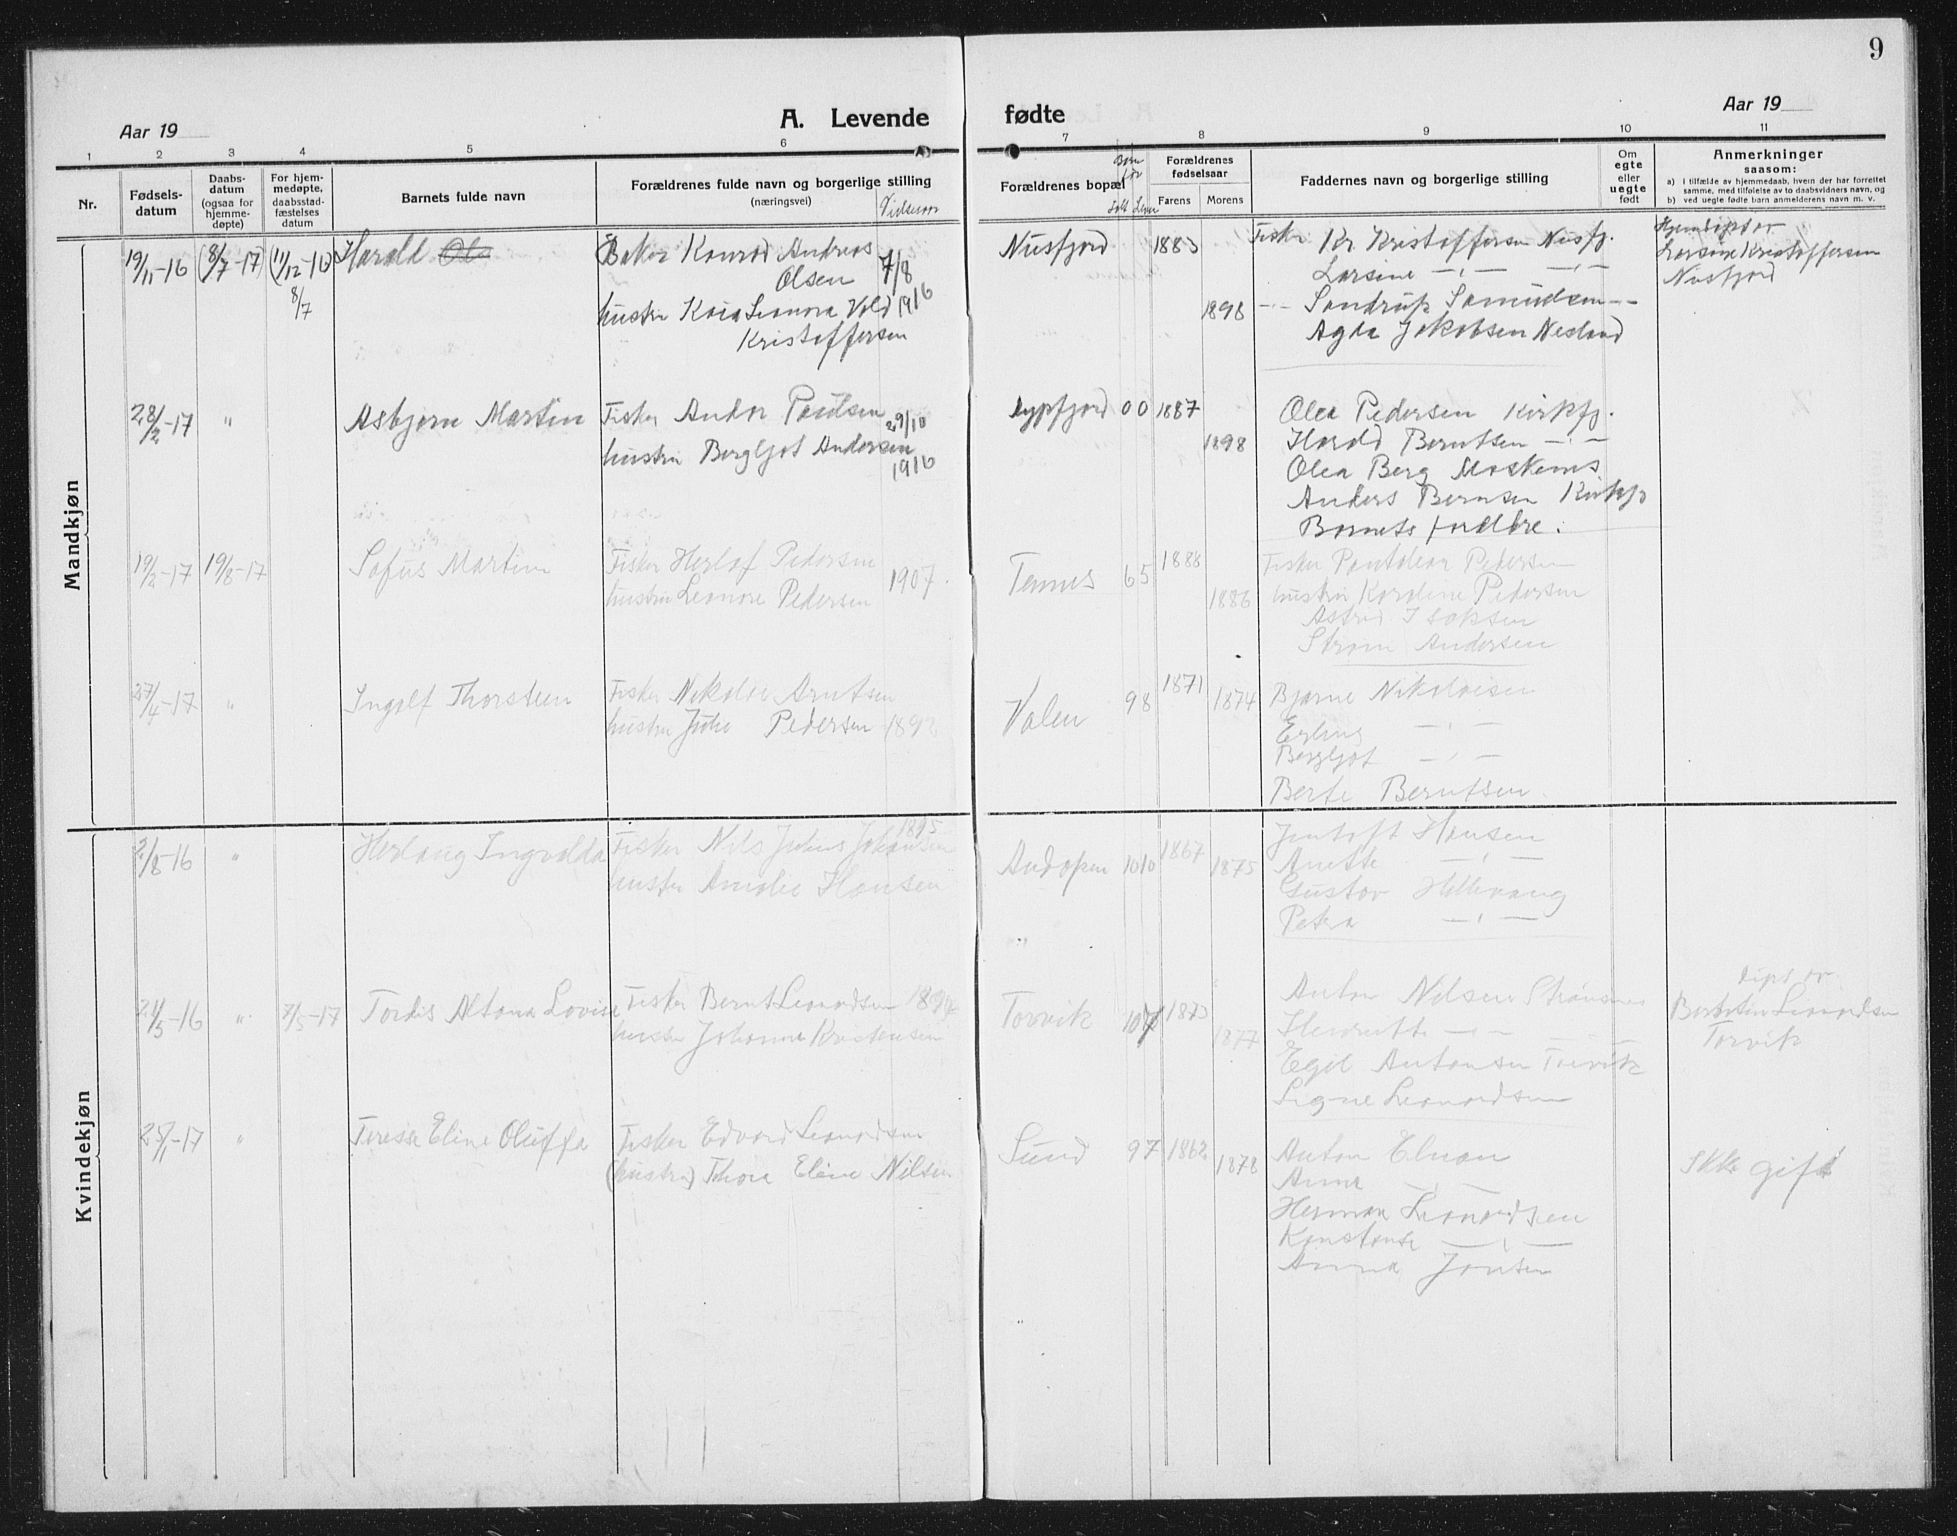 9
Aar 19
A. Levende
fødte
Aar 19
1 2 3 4 5 6 7 8 9 10 11
Nr.
Fødsels-
datum
Daabs-
datum
(ogsaa for
hjemme-
døpte)
For hjem-
medøpte,
daabsstad-
fæstelses
datum
Barnets fulde navn
Forældrenes fulde navn og borgerlige stilling
(næringsvei)
Vielsesaar
Forældrenes bopæl
Børn
før
født Lever
Forældrenes
fødselsaar
Farens Morens
Faddernes navn og borgerlige stilling
Om
egte
eller
uegte
født
Anmerkninger
saasom:
a) i tilfælde av hjemmedaab, hvem der har forrettet
samme, med tilføielse av to daabsvidners navn, og
b) ved uegte fødte barn anmelderens navn m. v.
Mandkjøn
19/11-16 (8/7-17) (11/12-16)
8/7
Harald Ol
Baker Konrad Andreas
Olsen 7/8
hustru Kaia Leonora Vold 1916
Kristoffersen
Nusfjord 1883
1898
Fisker Kr Kristoffersen Nusfj.
Larsine —"— —"—
—"— Sandrup Samuelsen —"—
Agda Jakobsen Nesland
Hjemdøpt av
Larsine Kristoffersen
Nusfjord
28/2-17 "
Asbjørn Martin
Fisker Andor Paulsen 29/10
hustru Bergljot Andersen
1916
Nypfjord 0 0 1887
1898
Olea Pedersen Kirkfj.
Harald Berntsen —"—
Olea Berg Moskenes
Anders Berntsen Kirkfj
Barnets forældre.
19/2-17 19/8-17
Sofus Martin
Fisker Herlof Pedersen
hustru Leonore Pedersen 1907
Tennes 6 5 1888
1886
Fisker Pantolean Pedersen
hustru Karoline Pedersen
Astrid Isaksen
Strøm Andersen
27/4-17 "
Ingolf Thorstein
Fisker Nikolai Arntsen
hustru Julie Pedersen 1892
Valen 9 8 1871 1874
Bjarne Nikolaisen
Erling —"—
Bergljot —"—
Berte Berntsen.
Kvindekjøn
2/8-16 "
Herlaug Ingvalda
Fisker Nils Julius Johansen 1895
hustru Amalie Hansen
Andopen 10 10 1867 1875
Jentoft Hansen
Anette —"—
Gustav Hellevang
Petra —"—
21/5-16 " 7/5-17
Tordis Altona Lovise
Fisker Bernt Leonardsen 1894
hustru Johanna Kristensen
Torvik 10 7 1873
1877
Anton Nilsen Strømsnes
Henriette —"—
Egil Antonsen Torvik
Signe Leonardsen
døpt av
Leonardsen
Torvik
25/1-17 "
Teresse Eline Oluffa
Fisker Edvard Leonardsen
(hustru) Thora Eline Nilsen
Sund 9 7 1862
1878
Anton Elvan
Anna —"—
Herman Leonardsen
Konstanse —"—
Anna Jonsen
Ikke gift